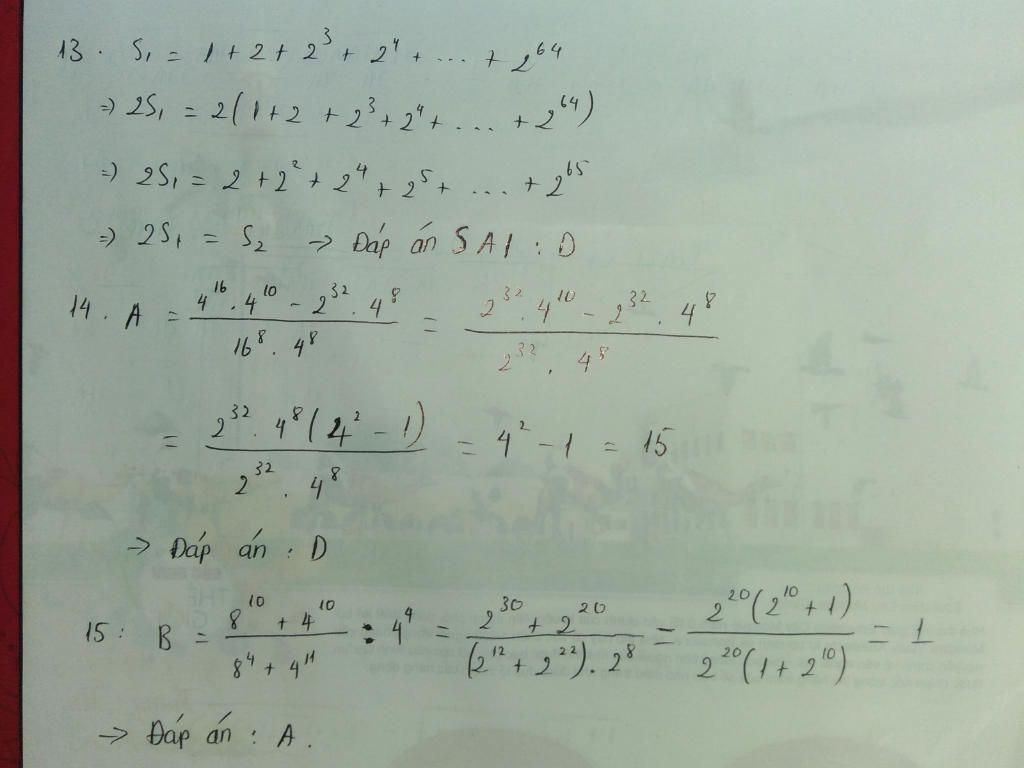 13. S₁ = 1 + 2 + 2³ + 2⁴ + ... + 2⁶⁴
⇒ 2S₁ = 2(1 + 2 + 2³ + 2⁴ + ... + 2⁶⁴)
⇒ 2S₁ = 2 + 2² + 2⁴ + 2⁵ + ... + 2⁶⁵
⇒ 2S₁ = S₂ → Đáp án SAI : D
14. A = (4¹⁶ . 4¹⁰ - 2³² . 4⁸)/(16⁸ . 4⁸) = (2³² . 4¹⁰ - 2³² . 4⁸)/(2³² . 4⁸)
= (2³² . 4⁸(4² - 1))/(2³² . 4⁸) = 4² - 1 = 15
→ Đáp án : D
15 : B = (8¹⁰ + 4¹⁰)/(8⁴ + 4¹¹) : 4⁴ = (2³⁰ + 2²⁰)/((2¹² + 2²²) . 2⁸) = (2²⁰(2¹⁰ + 1))/(2²⁰(1 + 2¹⁰)) = 1
→ Đáp án : A.